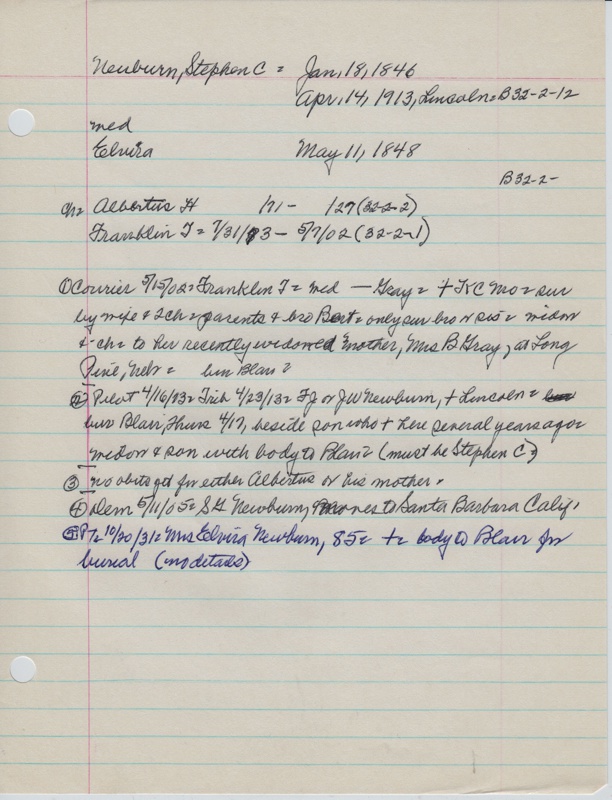 Newburn, Stephen C = Jan, 18, 1846
Apr. 14, 1913, Lincoln = B32-2-12
med
Elvira May 11, 1848
B32-2-
ch = Albertus H 1/71 - 1/27 (32-2-2)
Franklin T = 7/31/73 - 5/7/02 (32-2-1)
① Courier 5/15/02 = Franklin T = med — Gray = + KC Mo = sur
by wife & 2 ch = parents & bro Bert = only sur bro or sis = widow
& ch = to her recently widowed mother, Mrs B Gray, at Long
Pine, Neb = bur Blair =
② Pilot 4/16/13 = Trib 4/23/13 = FJ or JW Newburn, + Lincoln =
bur Blair, Thurs 4/17, beside son who + here several years ago =
widow & son with body to Blair = (must be Stephen C =)
③ no obits got for either Albertus or his mother.
④ Dem 5/11/05 = Newburn, moves to Santa Barbara Calif.
⑤ 10/20/31 = Mrs Elvira Newburn, 85 = + = body to Blair for
burial (no details)